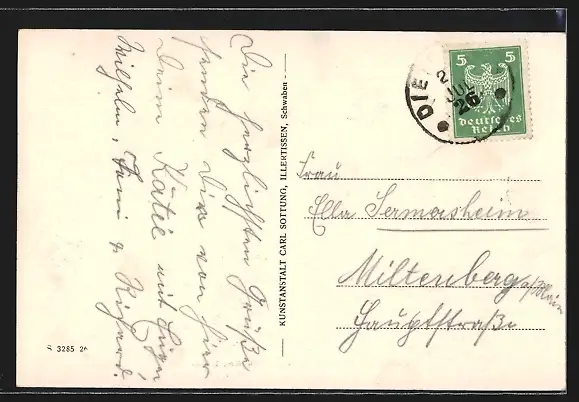 Die herzlichsten Grüße
senden Dir von hier
Deine Katie mit
Wilhelm, &
KUNSTANSTALT CARL SOTTUNG, ILLERTISSEN, Schwaben
3285 26
5 5
Deutsches
Reich
DIE
2
JUL
26
Frau
Ella Germersheim
Miltenberg a/Main
Hauptstraße